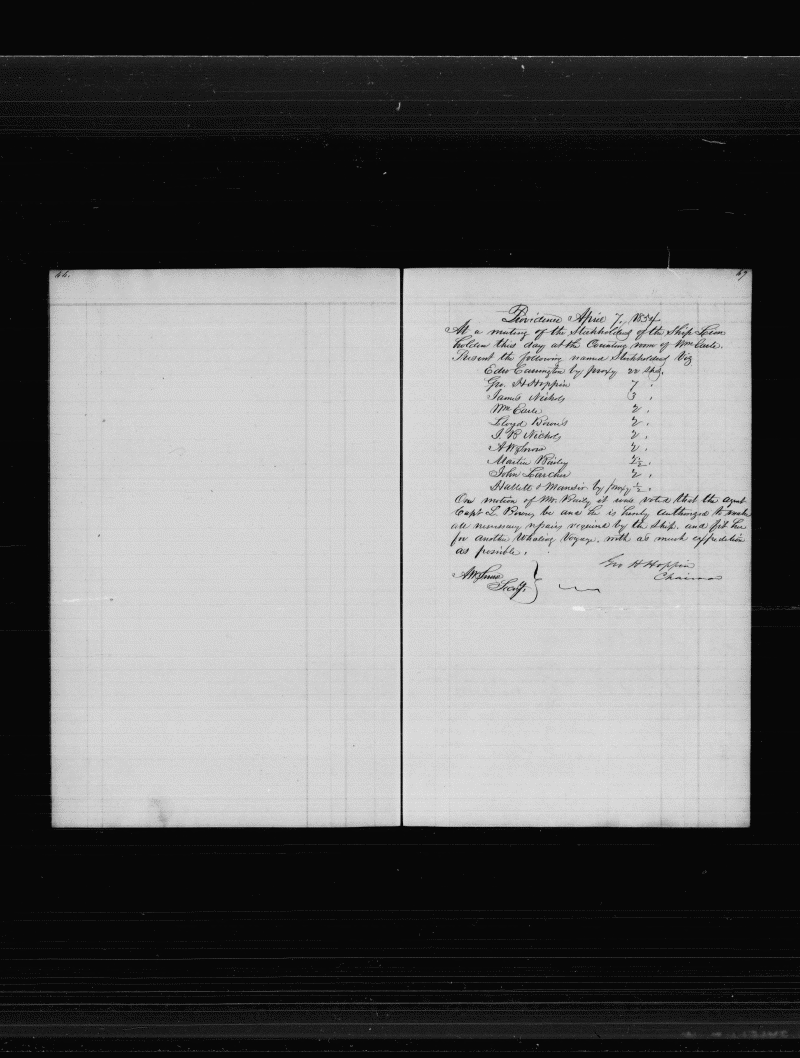 46.
47
Providence April 7, 1854.
At a meeting of the Stockholders of the Ship Lion
holden this day at the Counting room of Wm Earle.
Present the following named Stockholders Viz
Edw Carrington by proxy 22 Shs.
Geo. H Hoppin 7 "
James Nichols 3 "
Wm Earle 2 "
Lloyd Bowers 2 "
J. B Nichols 2 "
A W Snow 2 "
Martin Baily 2½ "
John Larcher 2 "
Hallett & by proxy ½ "
On motion of Mr. Baily it was voted that the agent
Capt L. Bowers be and he is hereby authorized to make
all necessary repairs required by the Ship. and fit her
for another Whaling Voyage. with as much expedition
as possible.
Geo H Hoppin
Chairman
A W Snow
Secty.